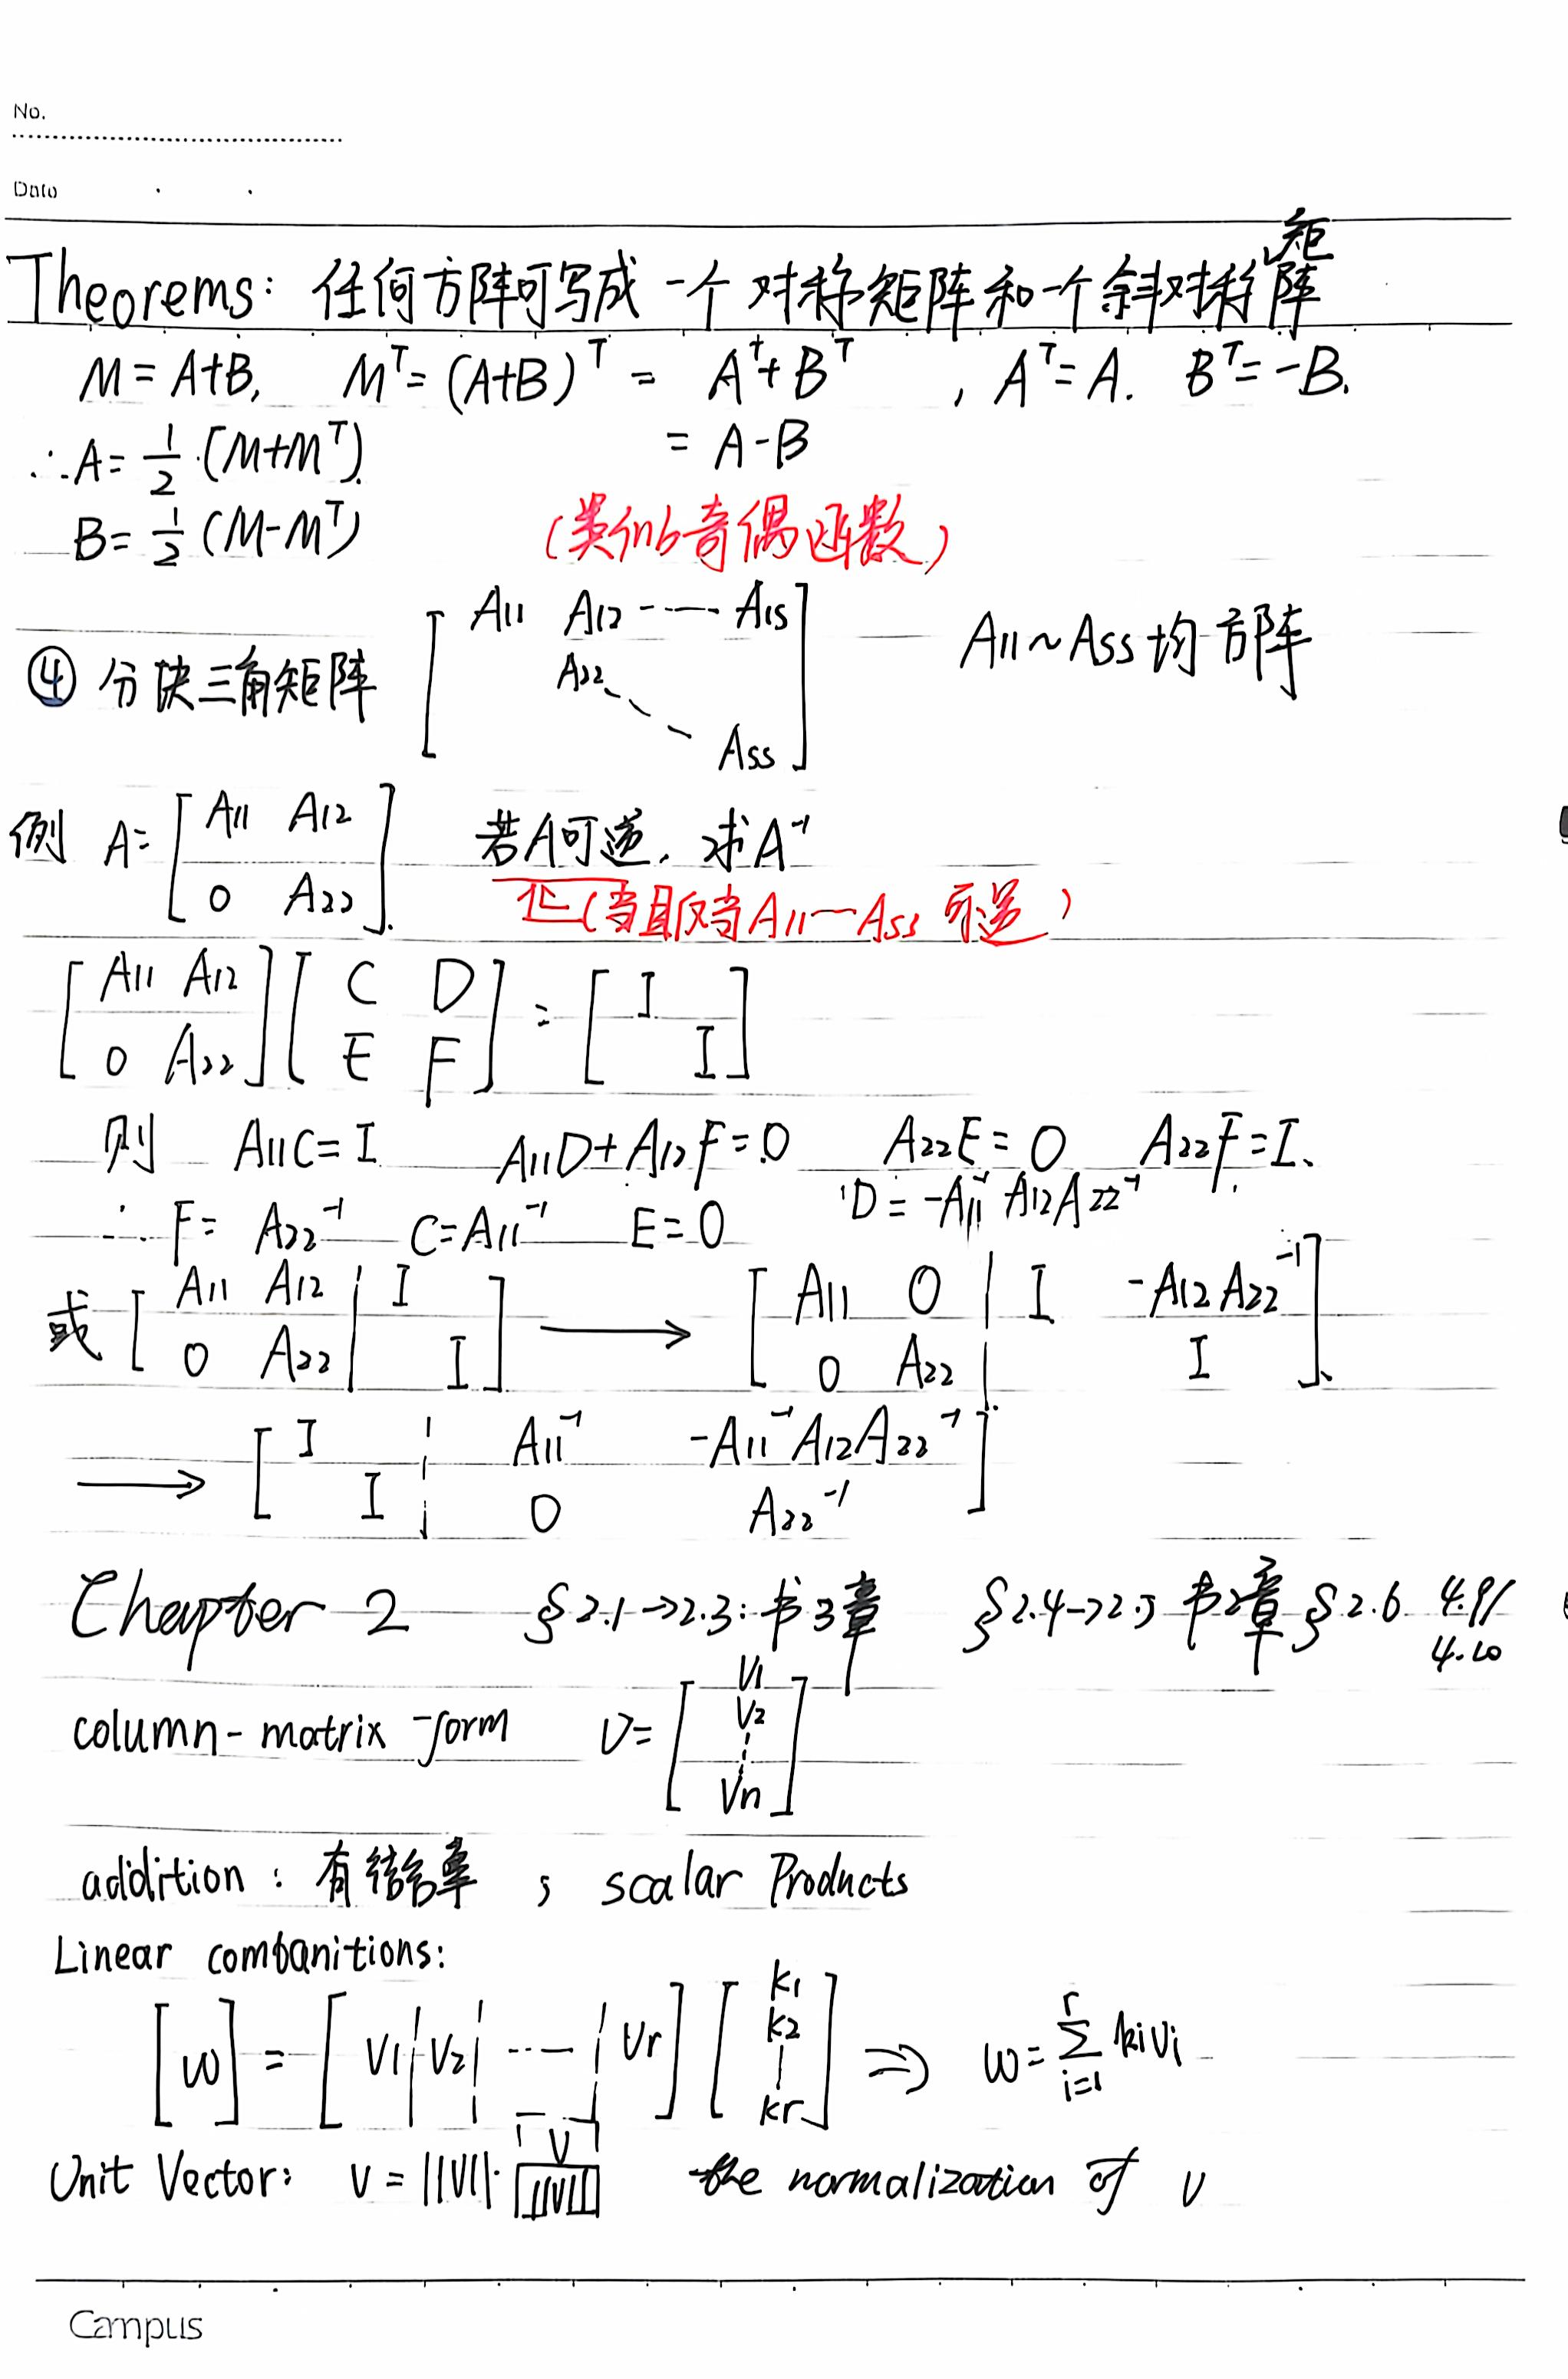 No.
Date
Theorems: 任何方阵可写成一个对称矩阵和一个斜对称矩阵
M = A+B, Mᵀ = (A+B)ᵀ = Aᵀ+Bᵀ , Aᵀ = A. Bᵀ = -B.
∴ A = 1/2 · (M+Mᵀ). = A-B
B = 1/2 (M-Mᵀ) (类似奇偶函数)
④ 分块三角矩阵 [ A11 A12 ---- A1s
A22
Ass ] A11 ~ Ass 均方阵
例 A = [ A11 A12
0 A22 ]. 若A可逆, 求A⁻¹
(当且仅当 A11 — Ass 可逆)
[ A11 A12
0 A22 ] [ C D
E F ] = [ I
I ]
则 A11C = I A11D + A12F = 0 A22E = 0 A22F = I.
∴ F = A22⁻¹ C = A11⁻¹ E = 0 D = -A11⁻¹A12A22⁻¹
或 [ A11 A12 | I
0 A22 | I ] → [ A11 0 | I -A12A22⁻¹
0 A22 | I ].
→ [ I ¦ A11⁻¹ -A11⁻¹A12A22⁻¹
I ¦ 0 A22⁻¹ ]
Chapter 2 §2.1→2.3: 书3章 §2.4→2.5 书2章 §2.6 4.9/
4.10
column-matrix form v = [ v1
v2
⋮
vn ]
addition : 有结合率 ; scalar Products
Linear combanitions:
[ w ] = [ v1 ¦ v2 ¦ ---- ¦ vr ] [ k1
k2
|
kr ] ⇒ w = Σ_{i=1}^{r} kivi
Unit Vector: v = ||v|| · v/||v|| the normalization of v
Campus